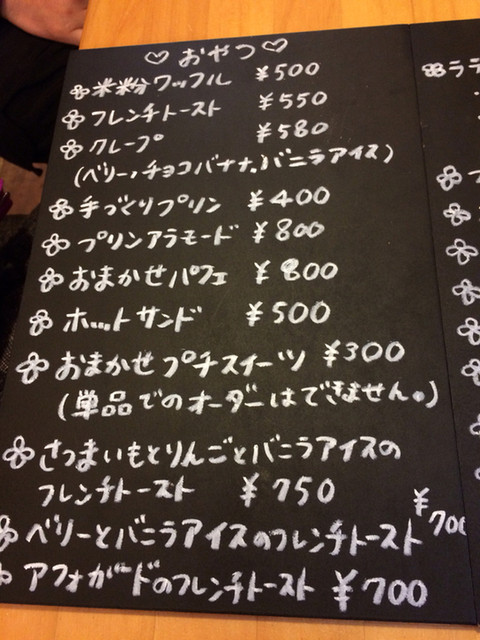 ♡おやつ♡
米粉ワッフル ¥500
フレンチトースト ¥550
クレープ ¥580
(ベリー、チョコバナナ、バニラアイス)
手づくりプリン ¥400
プリンアラモード ¥800
おまかせパフェ ¥800
ホットサンド ¥500
おまかせプチスイーツ ¥300
(単品でのオーダーはできません。)
さつまいもとりんごとバニラアイスの
フレンチトースト ¥750
ベリーとバニラアイスのフレンチトースト ¥700
アフォガードのフレンチトースト ¥700